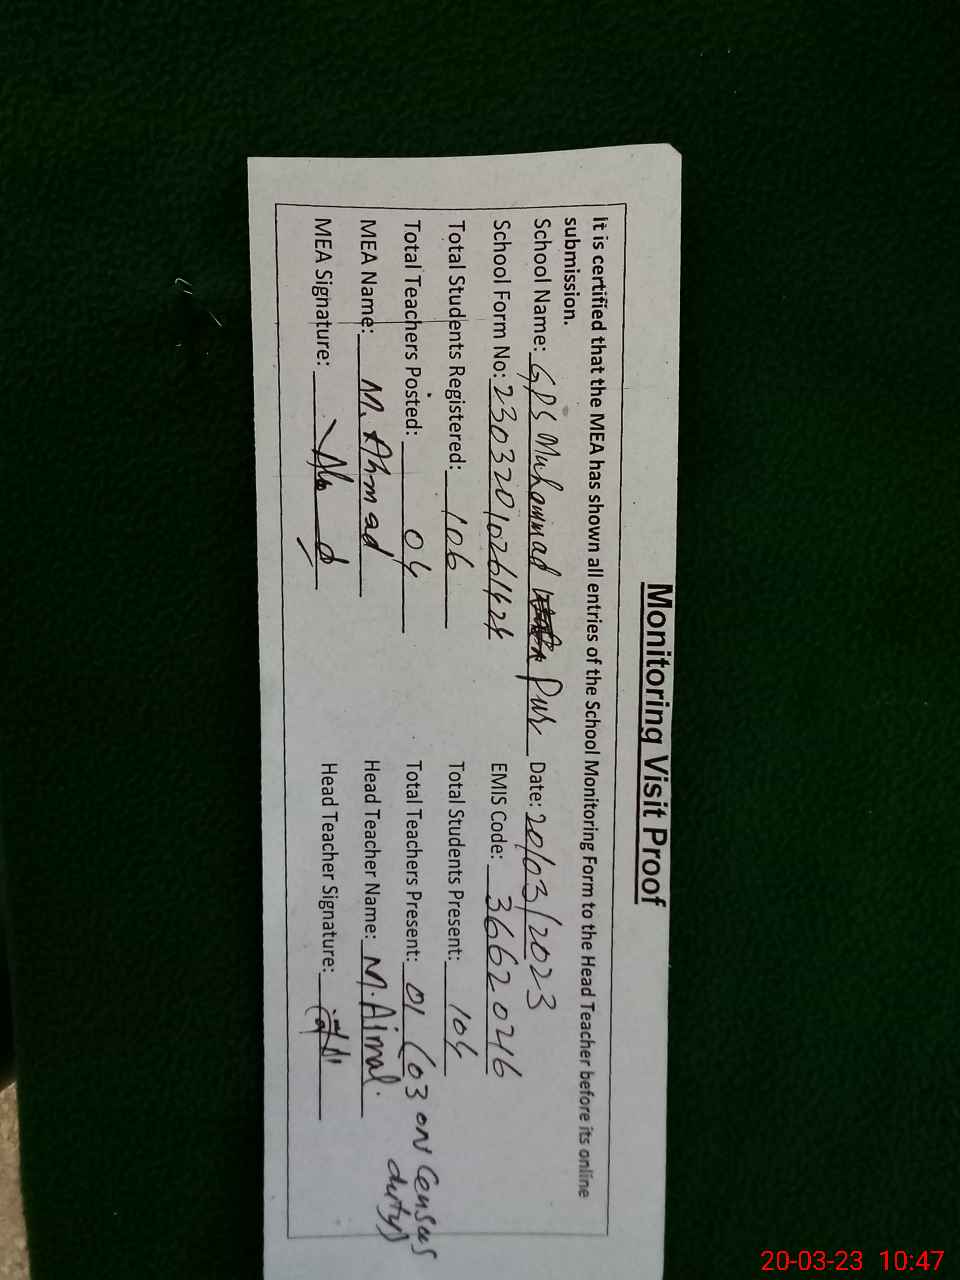 Monitoring Visit Proof
It is certified that the MEA has shown all entries of the School Monitoring Form to the Head Teacher before its online
submission.
School Name: GPS Muhammad Pur Date: 20/03/2023
School Form No: 2303201026142 EMIS Code: 36620216
Total Students Registered: 106 Total Students Present: 104
Total Teachers Posted: 04 Total Teachers Present: 01 (03 on Census
duty)
MEA Name: M. Ahmad Head Teacher Name: M. Ajmal.
MEA Signature: Head Teacher Signature:
20-03-23 10:47